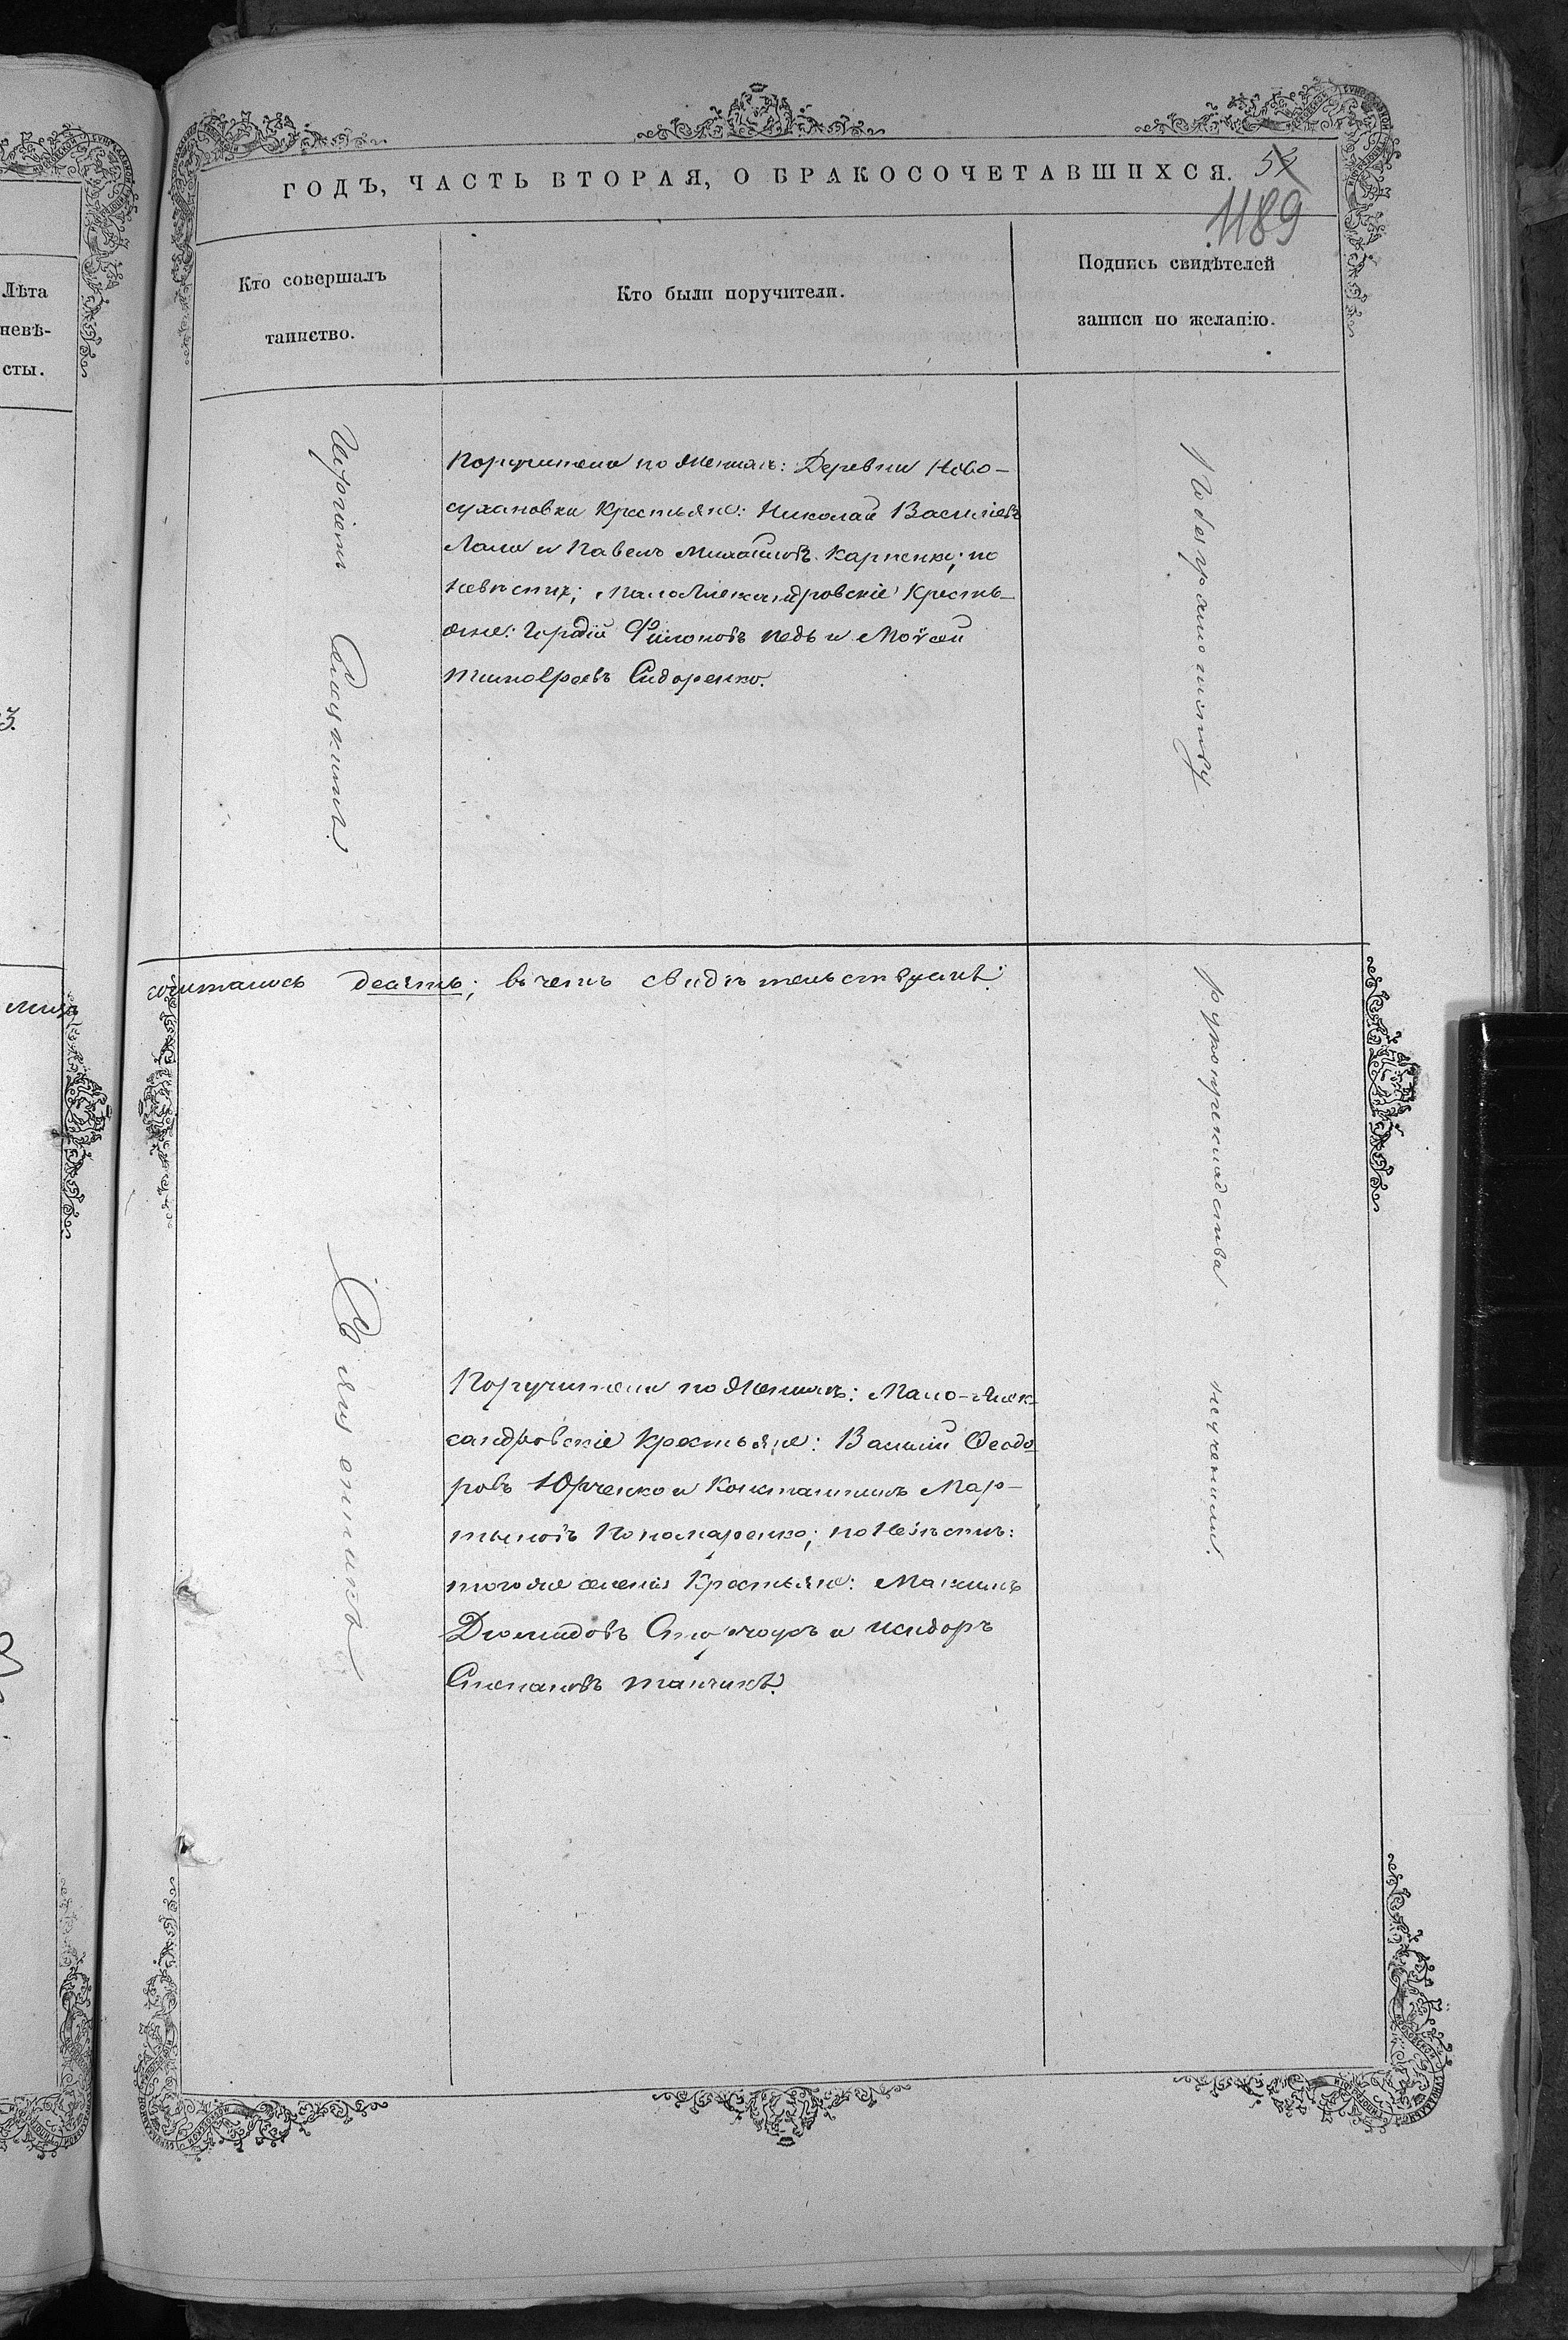 Лѣта
невѣ-
сты.
ГОДЪ, ЧАСТЬ ВТОРАЯ, О БРАКОСОЧЕТАВШИХСЯ.
1189
Кто совершалъ
таинство.
Кто были поручители.
Подпись свидѣтелей
записи по желанію.
Поручители по Женихѣ: Деревни Ново-
сухановки Крестьяне: Николай Василіевъ
и Павелъ Михаиловъ Карпенко; по
Невѣстѣ; МалоАлександровскіе Кресть-
яне: Филоновъ Педь и Моѵсей
Тимоѳеевъ Сидоренко.
сочиталось десять; въ чемъ свидѣтельствуемъ.
Священникъ
рукоприкладства
Поручители по Женихѣ: Мало-Алек-
сандровскіе Крестьяне: Василій Ѳеодо
ровъ Юрченко и Константинъ Мар-
тыновъ Пономаренко; по Невѣстѣ:
тогоже селенія Крестьяне: Максимъ
Діомидовъ и Исидоръ
Степановъ Танчикъ.